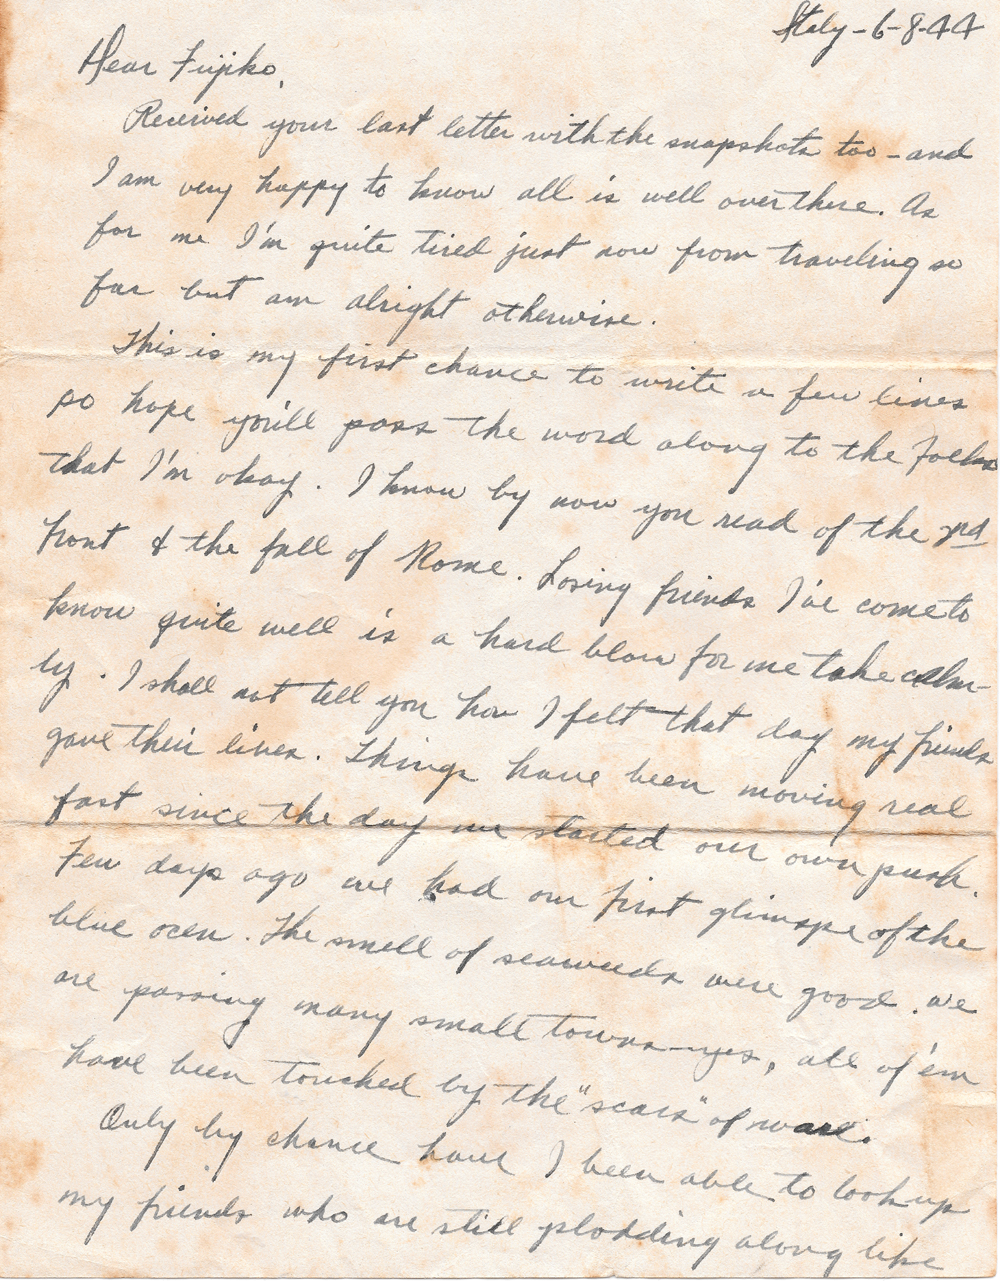 Italy - 6-8-44
Dear Fujiko,
Received your last letter with the snapshots too - and
I am very happy to know all is well over there. As
for me I'm quite tired just now from traveling so
far but am alright otherwise.
This is my first chance to write a few lines
so hope you'll pass the word along to the folks
that I'm okay. I know by now you read of the
front & the fall of Rome. Losing friends I've come to
know quite well is a hard blow for me take calm-
ly. I shall not tell you how I felt that day my friends
gave their lives. Things have been moving real
fast since the day we started our own push.
Few days ago we had our first glimspe of the
blue ocen. The smell of seaweeds were good. We
are passing many small towns - yes, all of 'em
have been touched by the "scars" of war.
Only by chance have I been able to look up
my friends who are still plodding along like